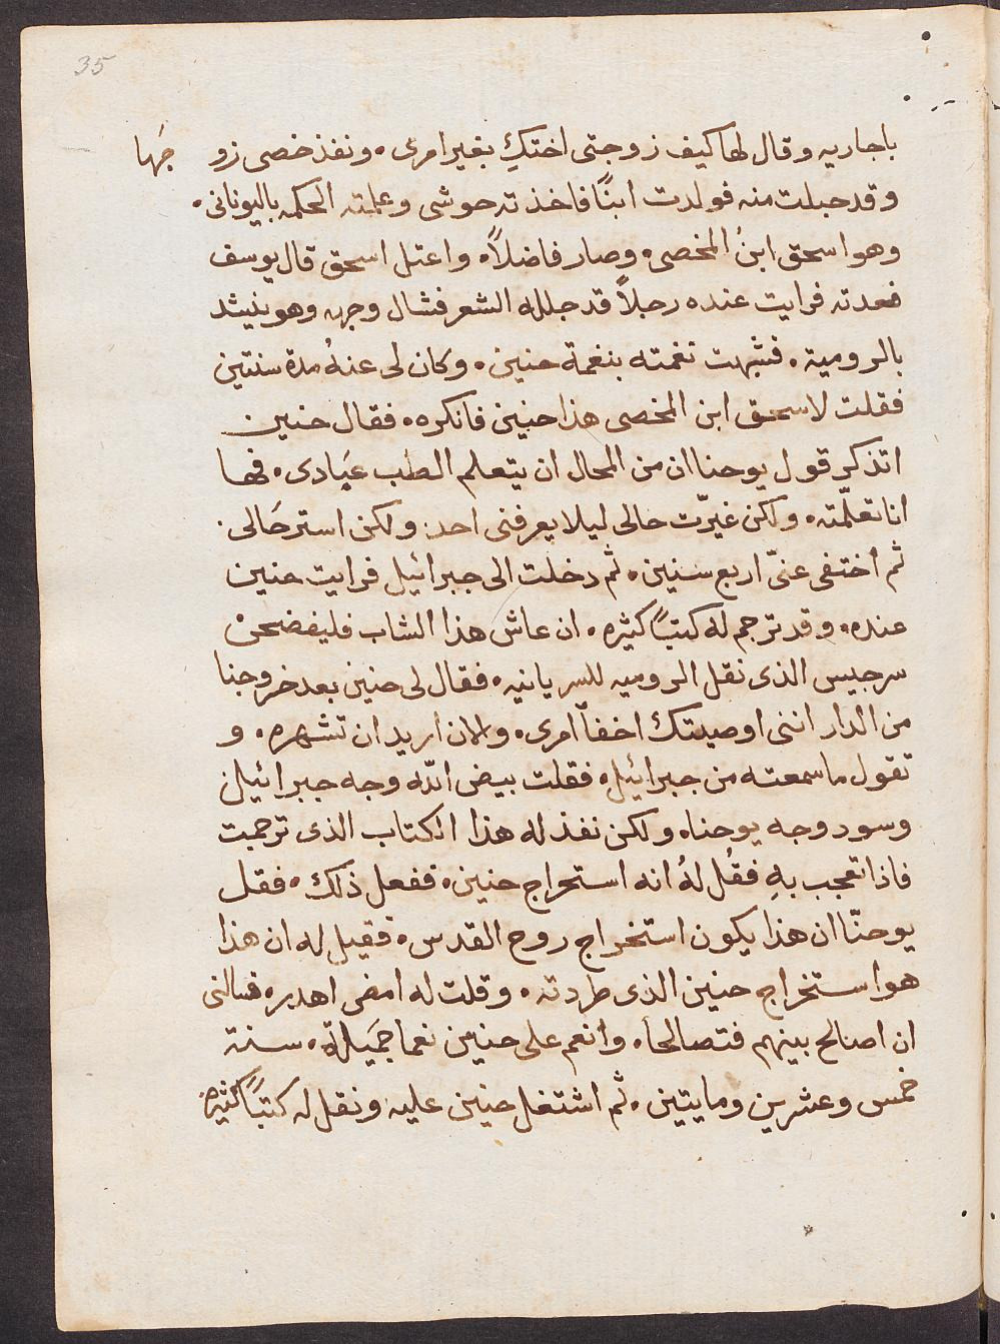 35
باجاريه وقال لها كيف زوجتى اختكِ بغير امرى ٠ ونفذ خصى زو جَها
وقد حبلت منه فولدت ابنًا فاخذته حوشى وعلمته الحكمه باليونانى ٠
وهو اسحق ابنُ المخصى ٠ وصار فاضلاً ٠ واعتل اسحق قال يوسف
فعدته فرايت عنده رجلاً قد جلله الشعر فشال وجهه وهو ينيشد
بالرومية ٠ فشبهت نغمته بنغمة حنين ٠ وكان لى عنهُ مدة سنتين
فقلت لاسحق ابن المخصى هذا حنين فانكره ٠ فقال حنين
اتذكر قول يوحنا ان من المحال ان يتعلم الطب عَبادى ٠ فها
انا تعلّمته ٠ ولكن غيرّت حالى ليلا يعرفنى احد ٠ ولكن استر حَالى ٠
ثم أختفى عنىّ اربع سنين ٠ ثم دخلت الى جبرائيل فرايت حنين
عنده ٠ وقد ترجم له كتبًا كثيره ٠ ان عاش هذا الشاب فليفضحنْ
سرجيس الذى نقل الروميه للسريانيه ٠ فقال لى حنين بعد خروجنا
من الدار اننى اوصيتك اخفاّ امرى ٠ والان اريد ان تشهره ٠ و
تقول ما سمعته من جبرائيل ٠ فقلت بيض اللّه وجه جبرائيل
وسود وجه يوحنا ٠ ولكن نفذ له هذا الكتاب الذى ترجمت
فاذا تعجب بهِ فقُل لهُ انه استخراج حنين ٠ ففعل ذلك ٠ فقل
يوحنّا ان هذا يكون استخراج روح القدس ٠ فقيل له ان هذا
هو استخراج حنين الذى طردته ٠ وقلت له امضى اهديه ٠ فسالنى
ان اصالح بينهم فتصالحا ٠ وانعم على حنين نعماً جَميلة ٠ سنة
خمس وعشرين ومايتين ٠ ثم اشتغل حنين عليه ونقل له كتبًا كثيره